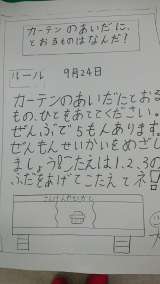 カーテンのあいだに、
とおるものはなんだ！
ルール　9月24日
カーテンのあいだにとおる
もの、ひとをあててください。
ぜんぶで5もんあります。
ぜんもんせいかいをめざし
ましょう！こたえは1.2.3の
ふだをあげてこたえてネ！